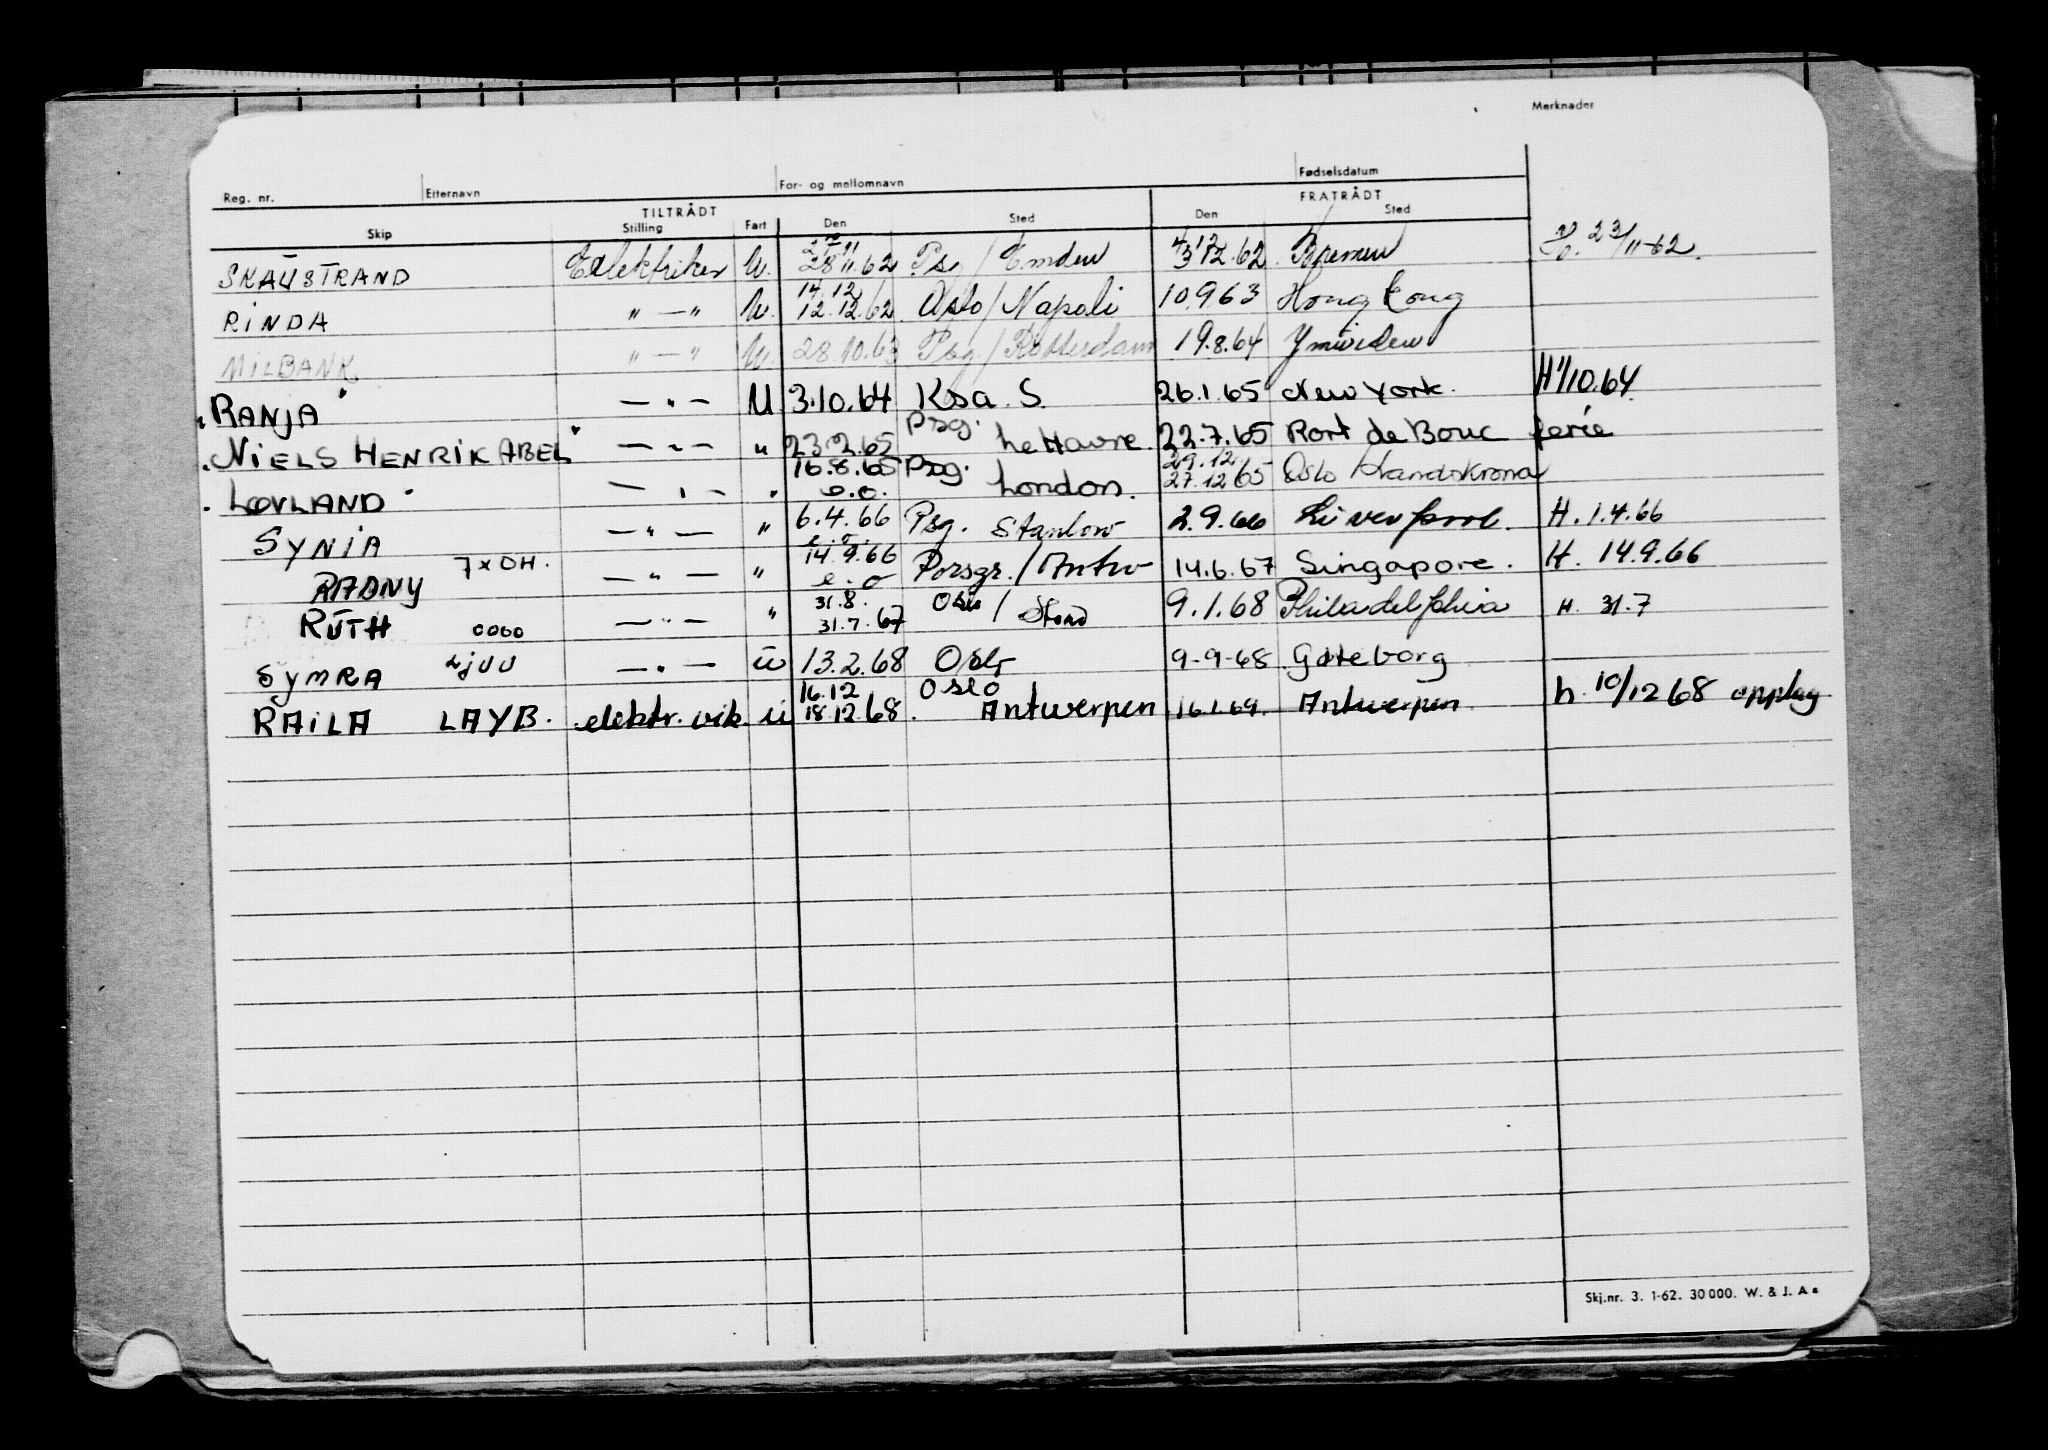 Merknader
Reg. nr. Efternavn For- og mellomnavn Fødselsdatum
TILTRÅDT FRATRÅDT
Skip Stilling Fart Den Sted Den Sted
SKAUSTRAND Elektriker U. 28 11.62 Ps / Emden 12.62 Bremen 23/11-62.
RINDA " — " U. 14 12 12.12.62 Oslo / Napoli 10.9.63 Hong Kong
MILBANK " — " U. 28.10.63 Psg / Rotterdam 19.8.64 Ymuiden
"RANJA" — " — U 3.10.64 Ksa. S. 26.1.65 New York. H 1/10.64
"NIELS HENRIK ABEL" — " — " 23.2.65 Psg. Le Havre 22.7.65 Port de Bouc ferie
"LOVLAND" — " — " 16.8.65 e.o. Psg. London. 29.12 27.12.65 Oslo / Landskrona
SYNIA — " — " 6.4.66 e.o. Psg. Stanlow 2.9.66 Liverpool. H. 1.4.66
RADNY 7xDH. — " — " 14.9.66 e.o Porsgr. / Antw 14.6.67 Singapore. H. 14.9.66
RUTH 0000 — " — " 31.8. 31.7.67 Oslo / Stord 9.1.68 Philadelphia H. 31.7
SYMRA LJUU — " — u 13.2.68 Oslo 9-9-68 Gøteborg
RAILA LAYB. elektr. vik. u 16.12 18.12.68. Oslo Antwerpen 16.1.69. Antwerpen h. 10/12 68 opplag
Skj.nr. 3. 1-62. 30 000. W. & J. A s